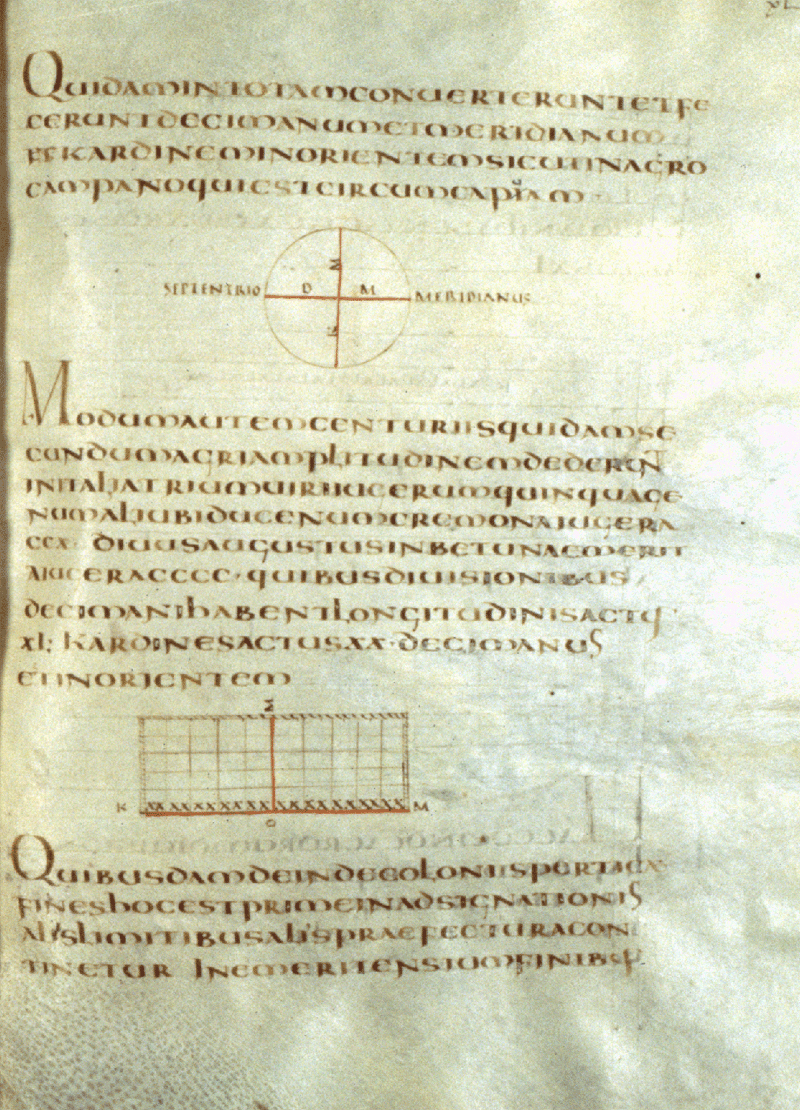 XL
QUIDAMINTOTAMCONUERTERUNTETFE
CERUNTDECIMANUMETMERIDIANUM
ETKARDINEMINORIENTEMSICUTINAGRO
CAMPANOQUIESTCIRCUMCAPUAM
SEPTENTRIO D M MERIDIANUS
K
MODUMAUTEMCENTURIISQUIDAMSE
CUNDUMAGRIAMPLITUDINEMDEDERUN
INITALIATRIUMUIRIIUGERUMQUINQUAGE
NUMALIUBIDUCENUMCREMONAIUGERA
CCX· DIUUSAUGUSTUSINBETUNAEMERIT
AIUGERACCCC·QUIBUSDIUISIONIBUS
DECIMANIHABENTLONGITUDINISACTQ·
XL; KARDINESACTUSXX·DECIMANUS
ETINORIENTEM
K XXXXXXXXXXXXXXXXXXXX M
O
QUIBUSDAMDEINDECOLONIISPERTICA
FINESHOCESTPRIMEINADSIGNATIONIS
ALIISLIMITIBUSALIISPRAEFECTURACON
TINETUR INEMERITENSIUMFINIBUS